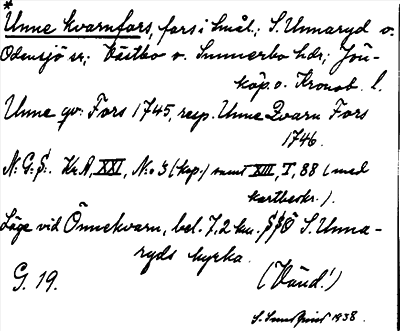 *
Unne kvarnfors, fors i Smål.; S. Unnaryd o.
Odensjö sr; Västbo o. Sunnerbo hdr; Jön-
köp. o. Kronob. l.
Unne qv: Fors 1745, resp. Unne Qvarn Fors
1746.
N: G: S:. Kr. A, XXI, N:o 3 (kop.) samt XIII, I, 88 (med
kartbeskr.).
Läge vid Önnekvarn, bel. 7,2 km. SSÖ S. Unna-
ryds kyrka.
G. 19. (Vänd!)
S. Sundquist 1938.